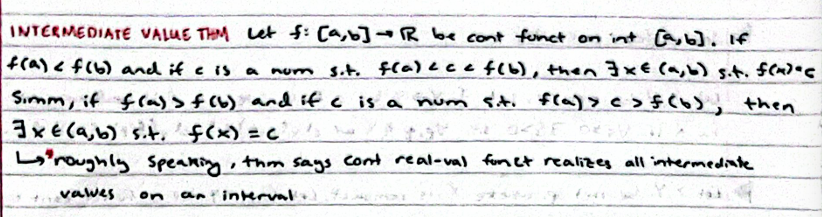 INTERMEDIATE VALUE THM Let f: [a,b] → ℝ be cont funct on int [a,b]. If
f(a) < f(b) and if c is a num s.t. f(a) < c < f(b), then ∃x∈ (a,b) s.t. f(x)=c
Simm, if f(a) > f(b) and if c is a num s.t. f(a) > c > f(b), then
∃x∈(a,b) s.t. f(x) = c
↳ roughly speaking, thm says cont real-val funct realizes all intermediate
values on an interval